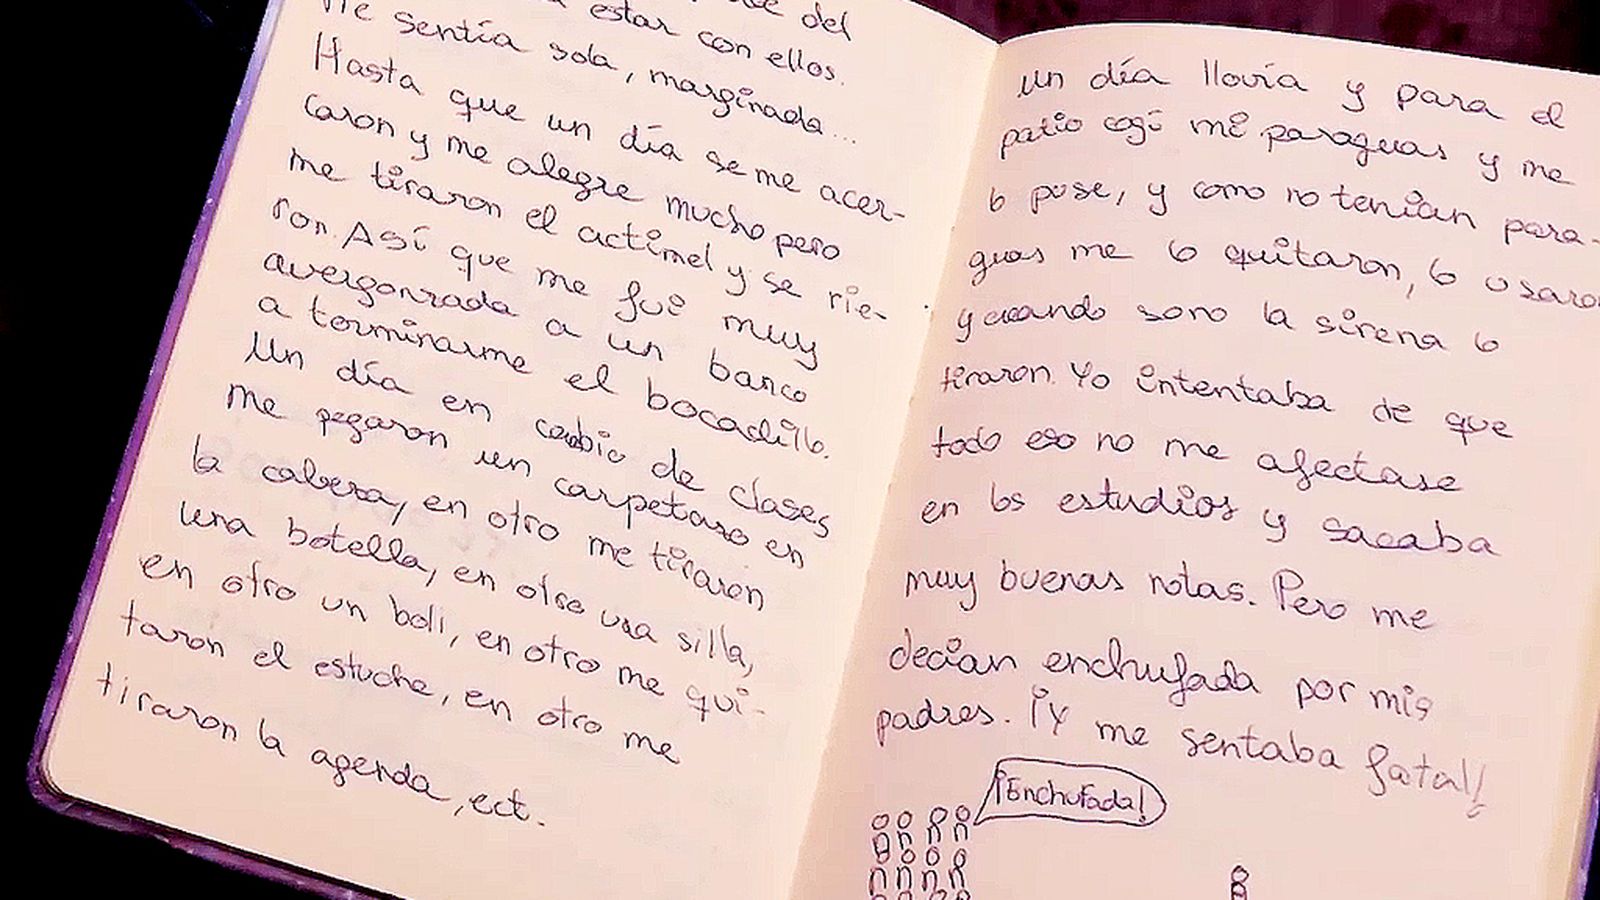 del
estar con ellos.
Me sentía sola, marginada...
Hasta que un día se me acer-
caron y me alegre mucho pero
me tiraron el actimel y se rie-
ron. Así que me fui muy
avergonzada a un banco
a terminarme el bocadillo.
Un día en cambio de clases
me pegaron un carpetaso en
la cabeza, en otro me tiraron
una botella, en otro una silla,
en otro un boli, en otro me qui-
taron el estuche, en otro me
tiraron la agenda, ect.
un día llovía y para el
patio cogí mi paraguas y me
lo puse, y como no tenían para-
guas me lo quitaron, lo usaron
y cuando sono la sirena lo
tiraron. Yo intentaba de que
todo eso no me afectase
en los estudios y sacaba
muy buenas notas. Pero me
decían enchufada por mis
padres. ¡Y me sentaba fatal!
¡Enchufada!